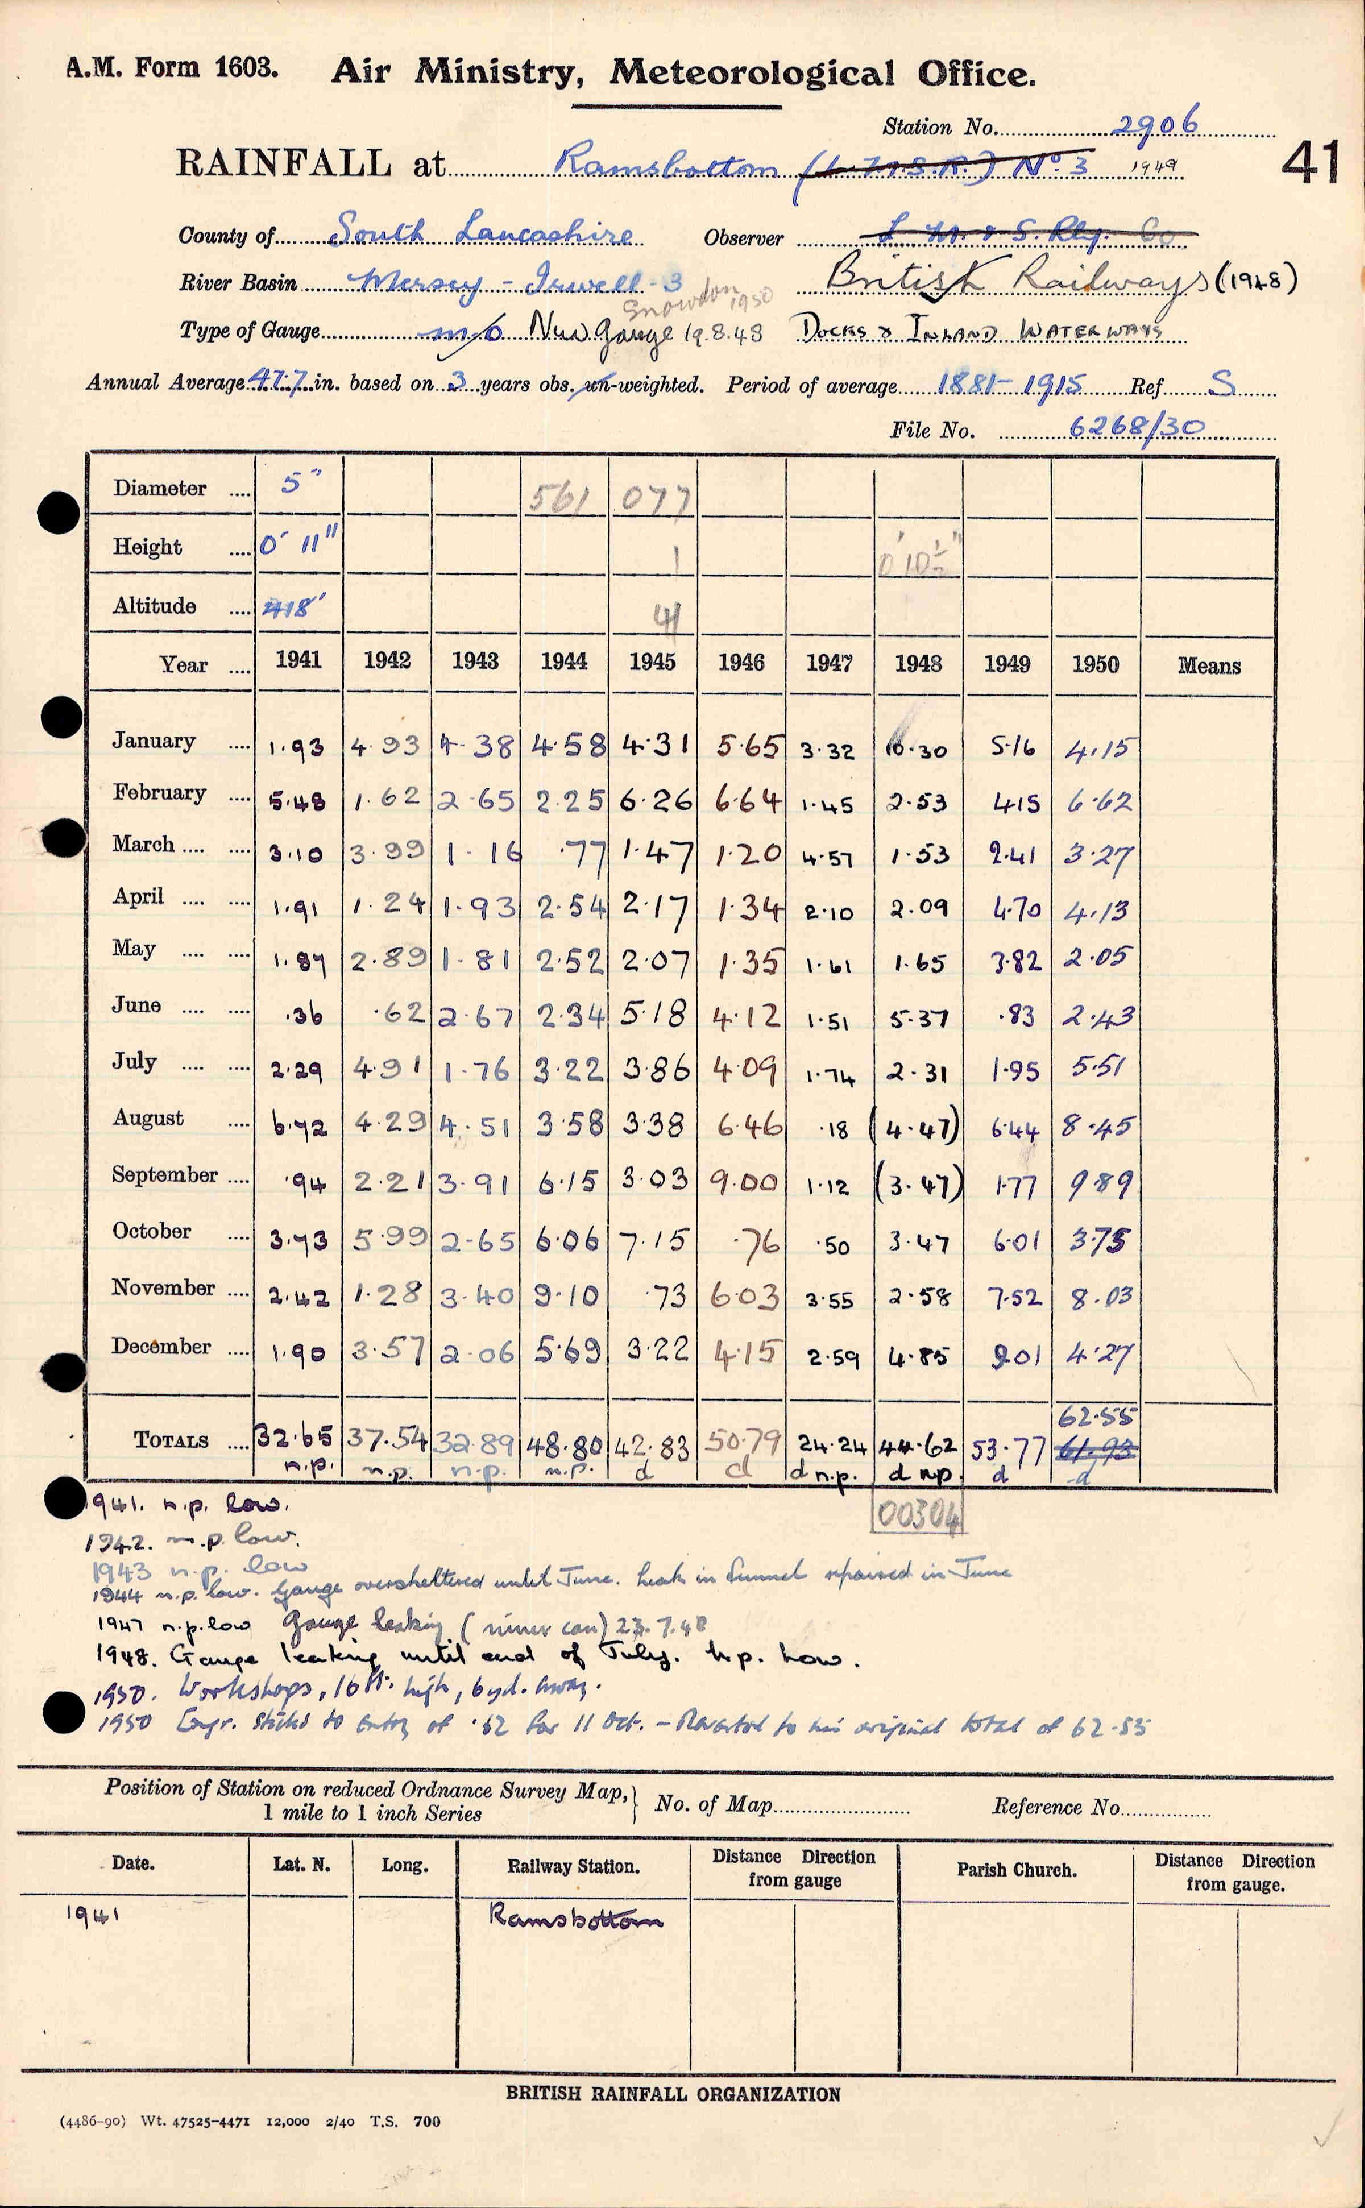 A.M. Form 1603. Air Ministry, Meteorological Office.
Station No. 2906
RAINFALL at Ramsbottom (L.M.S.R.) No. 3 1949 41
County of South Lancashire Observer L M. & S. Rly. Co
River Basin Mersey - Irwell - 3 British Railways (1948)
Snowdon 1950
Type of Gauge m/o New Gauge 19.8.48 DOCKS & INLAND WATERWAYS
Annual Average 47.7 in. based on 3 years obs. un-weighted. Period of average 1881-1915 Ref S
File No. 6268/30
Diameter .... 5" 561 077
Height .... 0' 11" 1 0' 10½"
Altitude .... 418' 41
Year .... 1941 1942 1943 1944 1945 1946 1947 1948 1949 1950 Means
January .... 1.93 4.93 4.38 4.58 4.31 5.65 3.32 10.30 5.16 4.15
February .... 5.48 1.62 2.65 2.25 6.26 6.64 1.45 2.53 4.15 6.62
March .... .... 3.10 3.99 1.16 .77 1.47 1.20 4.57 1.53 2.41 3.27
April .... .... 1.91 1.24 1.93 2.54 2.17 1.34 2.10 2.09 4.70 4.13
May .... .... 1.87 2.89 1.81 2.52 2.07 1.35 1.61 1.65 3.82 2.05
June .... .... .36 .62 2.67 2.34 5.18 4.12 1.51 5.37 .83 2.43
July .... .... 2.29 4.91 1.76 3.22 3.86 4.09 1.74 2.31 1.95 5.51
August .... 6.72 4.29 4.51 3.58 3.38 6.46 .18 (4.47) 6.44 8.45
September .... .94 2.21 3.91 6.15 3.03 9.00 1.12 (3.47) 1.77 9.89
October .... 3.73 5.99 2.65 6.06 7.15 .76 .50 3.47 6.01 3.75
November .... 2.42 1.28 3.40 9.10 .73 6.03 3.55 2.58 7.52 8.03
December .... 1.90 3.57 2.06 5.69 3.22 4.15 2.59 4.85 9.01 4.27
62.55
TOTALS .... 32.65 37.54 32.89 48.80 42.83 50.79 24.24 44.62 53.77 61.93
n.p. n.p. n.p. n.p. d d d n.p. d n.p. d d
00304
1941. n.p. low.
1942. n.p. low.
1943 n.p. low
1944 n.p. low. Gauge oversheltered until June. Leak in funnel repaired in June
1947 n.p. low Gauge leaking (inner can) 23.7.48
1948. Gauge leaking until end of July. n.p. low.
1950. Workshops, 16 ft. high, 6 yd. away.
1950 Engr. sticks to entry of .62 for 11 Oct. - Reverted to his original total of 62.55
Position of Station on reduced Ordnance Survey Map, } No. of Map Reference No.
1 mile to 1 inch Series
Date. Lat. N. Long. Railway Station. Distance from gauge Direction Parish Church. Distance from gauge. Direction
1941 Ramsbottom
BRITISH RAINFALL ORGANIZATION
(4486-90) Wt. 47525-4471 12,000 2/40 T.S. 700